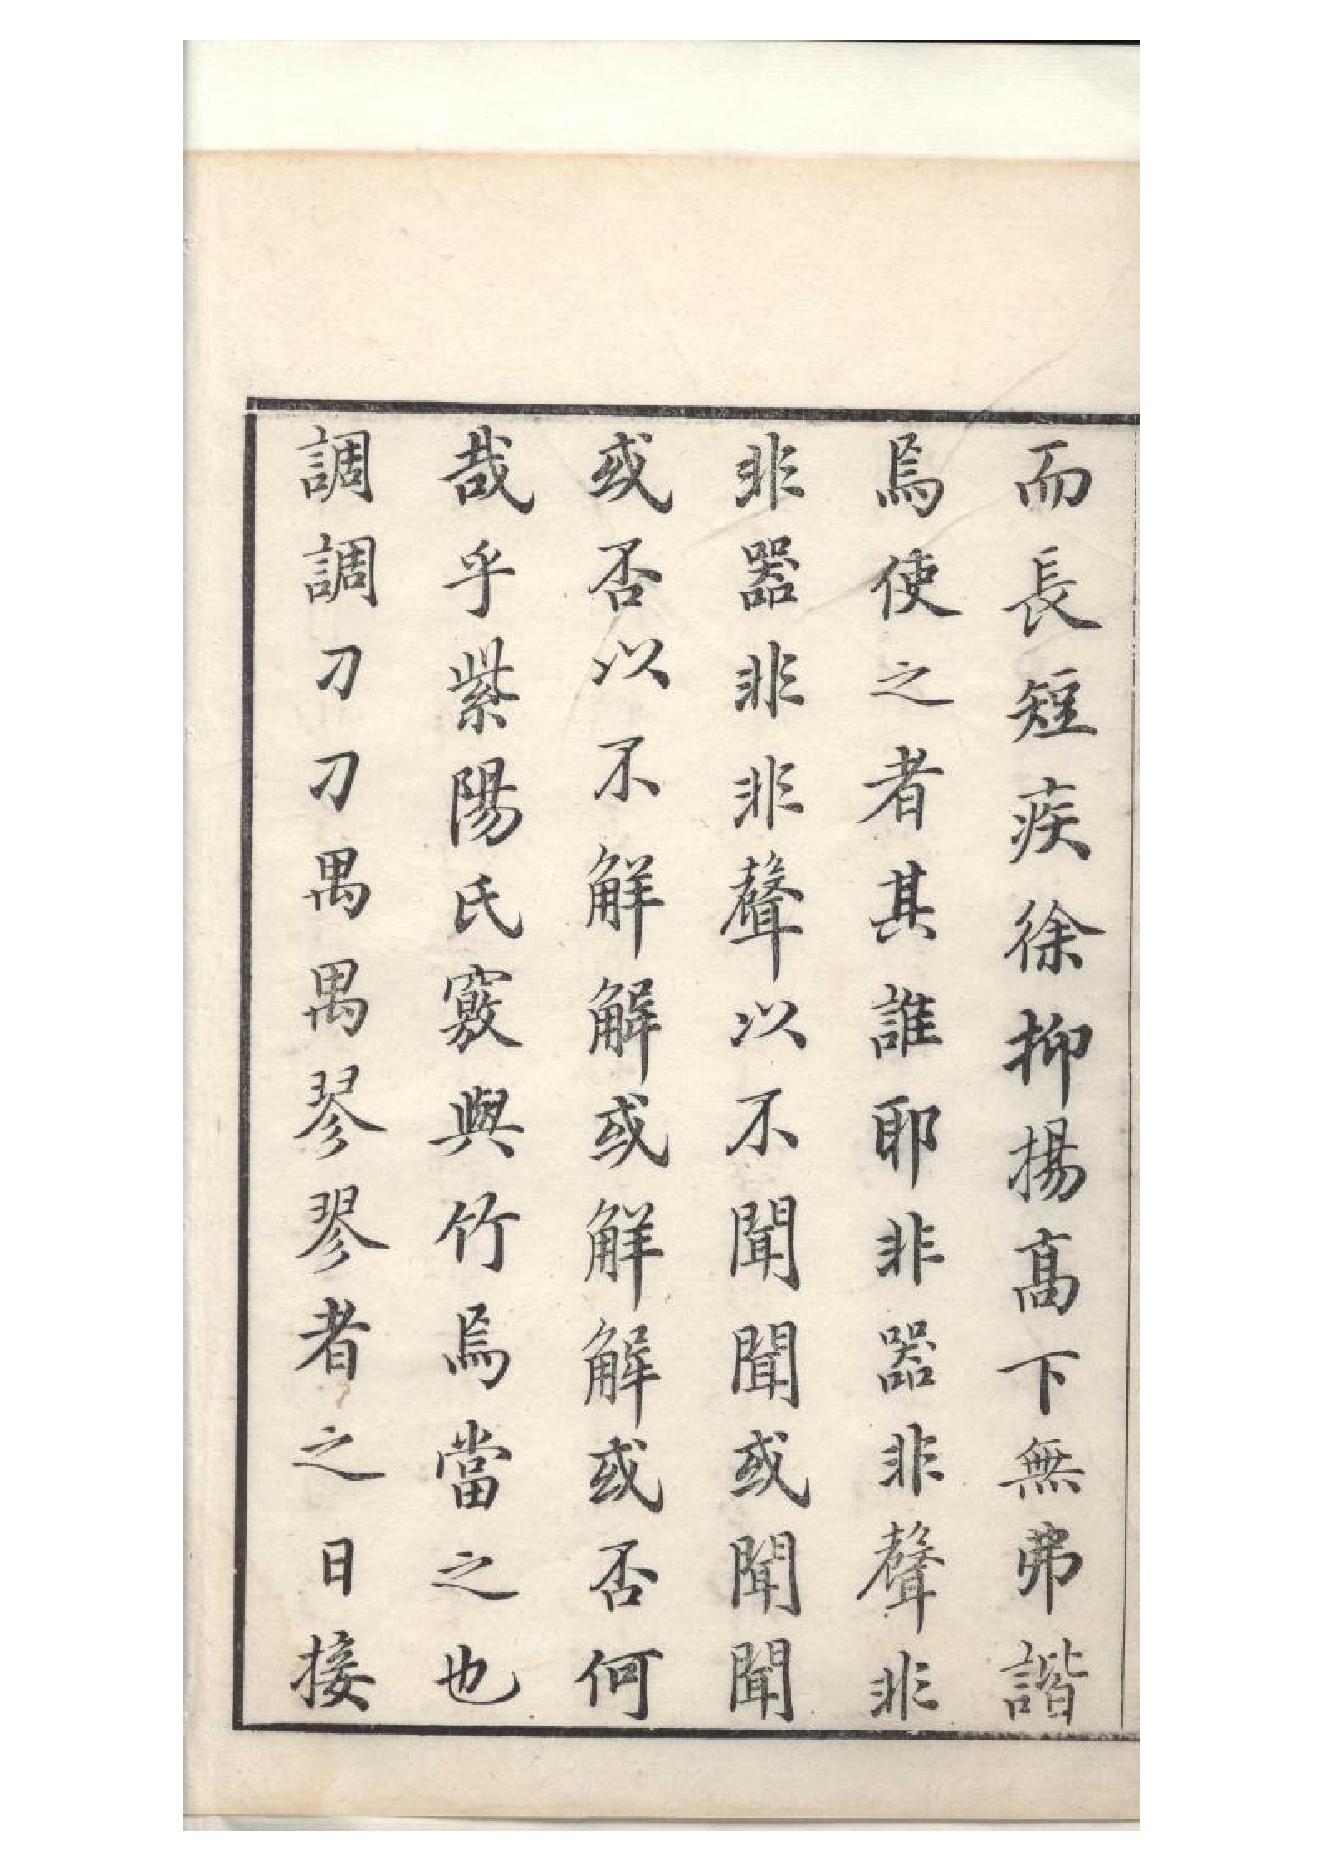 而長短疾徐抑揚高下無弗諧
焉使之者其誰耶非器非聲非
非器非非聲以不聞聞或聞聞
或否以不解解或解解或否何
哉乎紫陽氏竅與竹焉當之也
調調刀刀禺禺翏翏者之日接